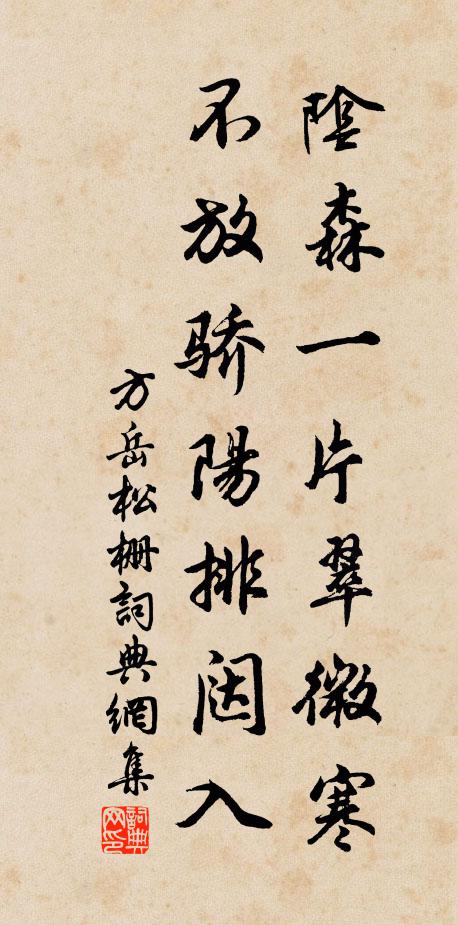 陰森一片翠微寒
不放骄陽排闼入
方岳松栅詞典網集
詞典网印